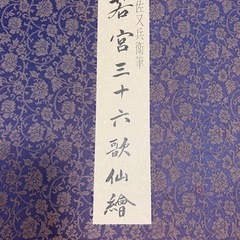 佐又兵衛筆
若宮三十六歌仙繪